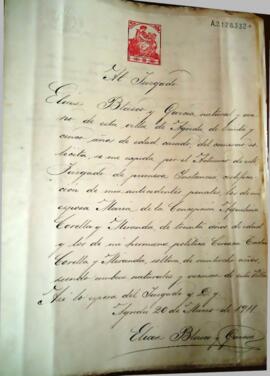 A2126332
Al Juzgado
Elias Blasco y García natural y
de esta villa de Agreda de treinta y
cinco años de edad casado, del comercio
solicita se me expida por el Tribunal de este
Juzgado de primera Instancia, certifica-
ción de mis antecedentes penales, los de mi
esposa María de la Concepción
Corella y Miranda, de treinta años de edad
y los de mi hermana política Carmen
Corella y Miranda, soltera de veintiocho años,
siendo ambas naturales y vecinas de esta Villa
Así lo espera del Juzgado y D. y
Agreda 20 de Marzo de 1911
Elias Blasco y García